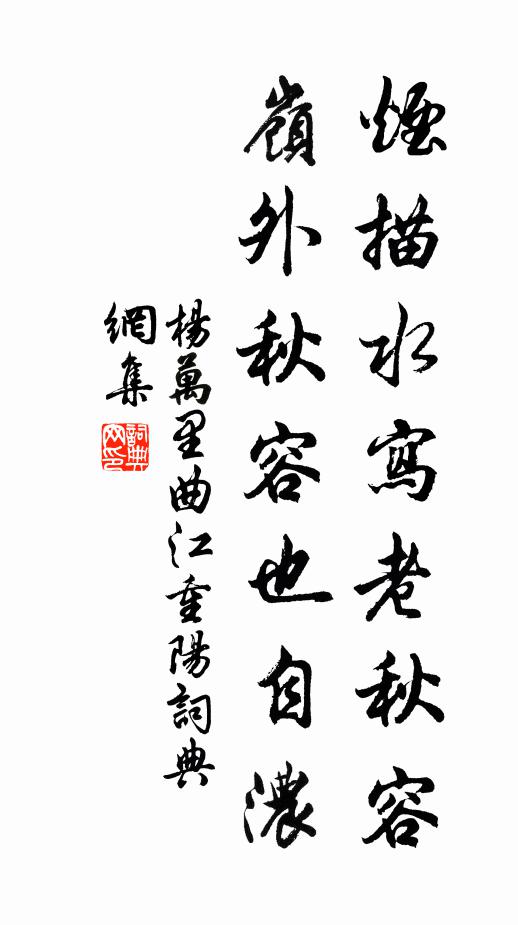 煙描水寫老秋容
嶺外秋容也自濃
楊萬里曲江重陽詞典
網集
詞典網印